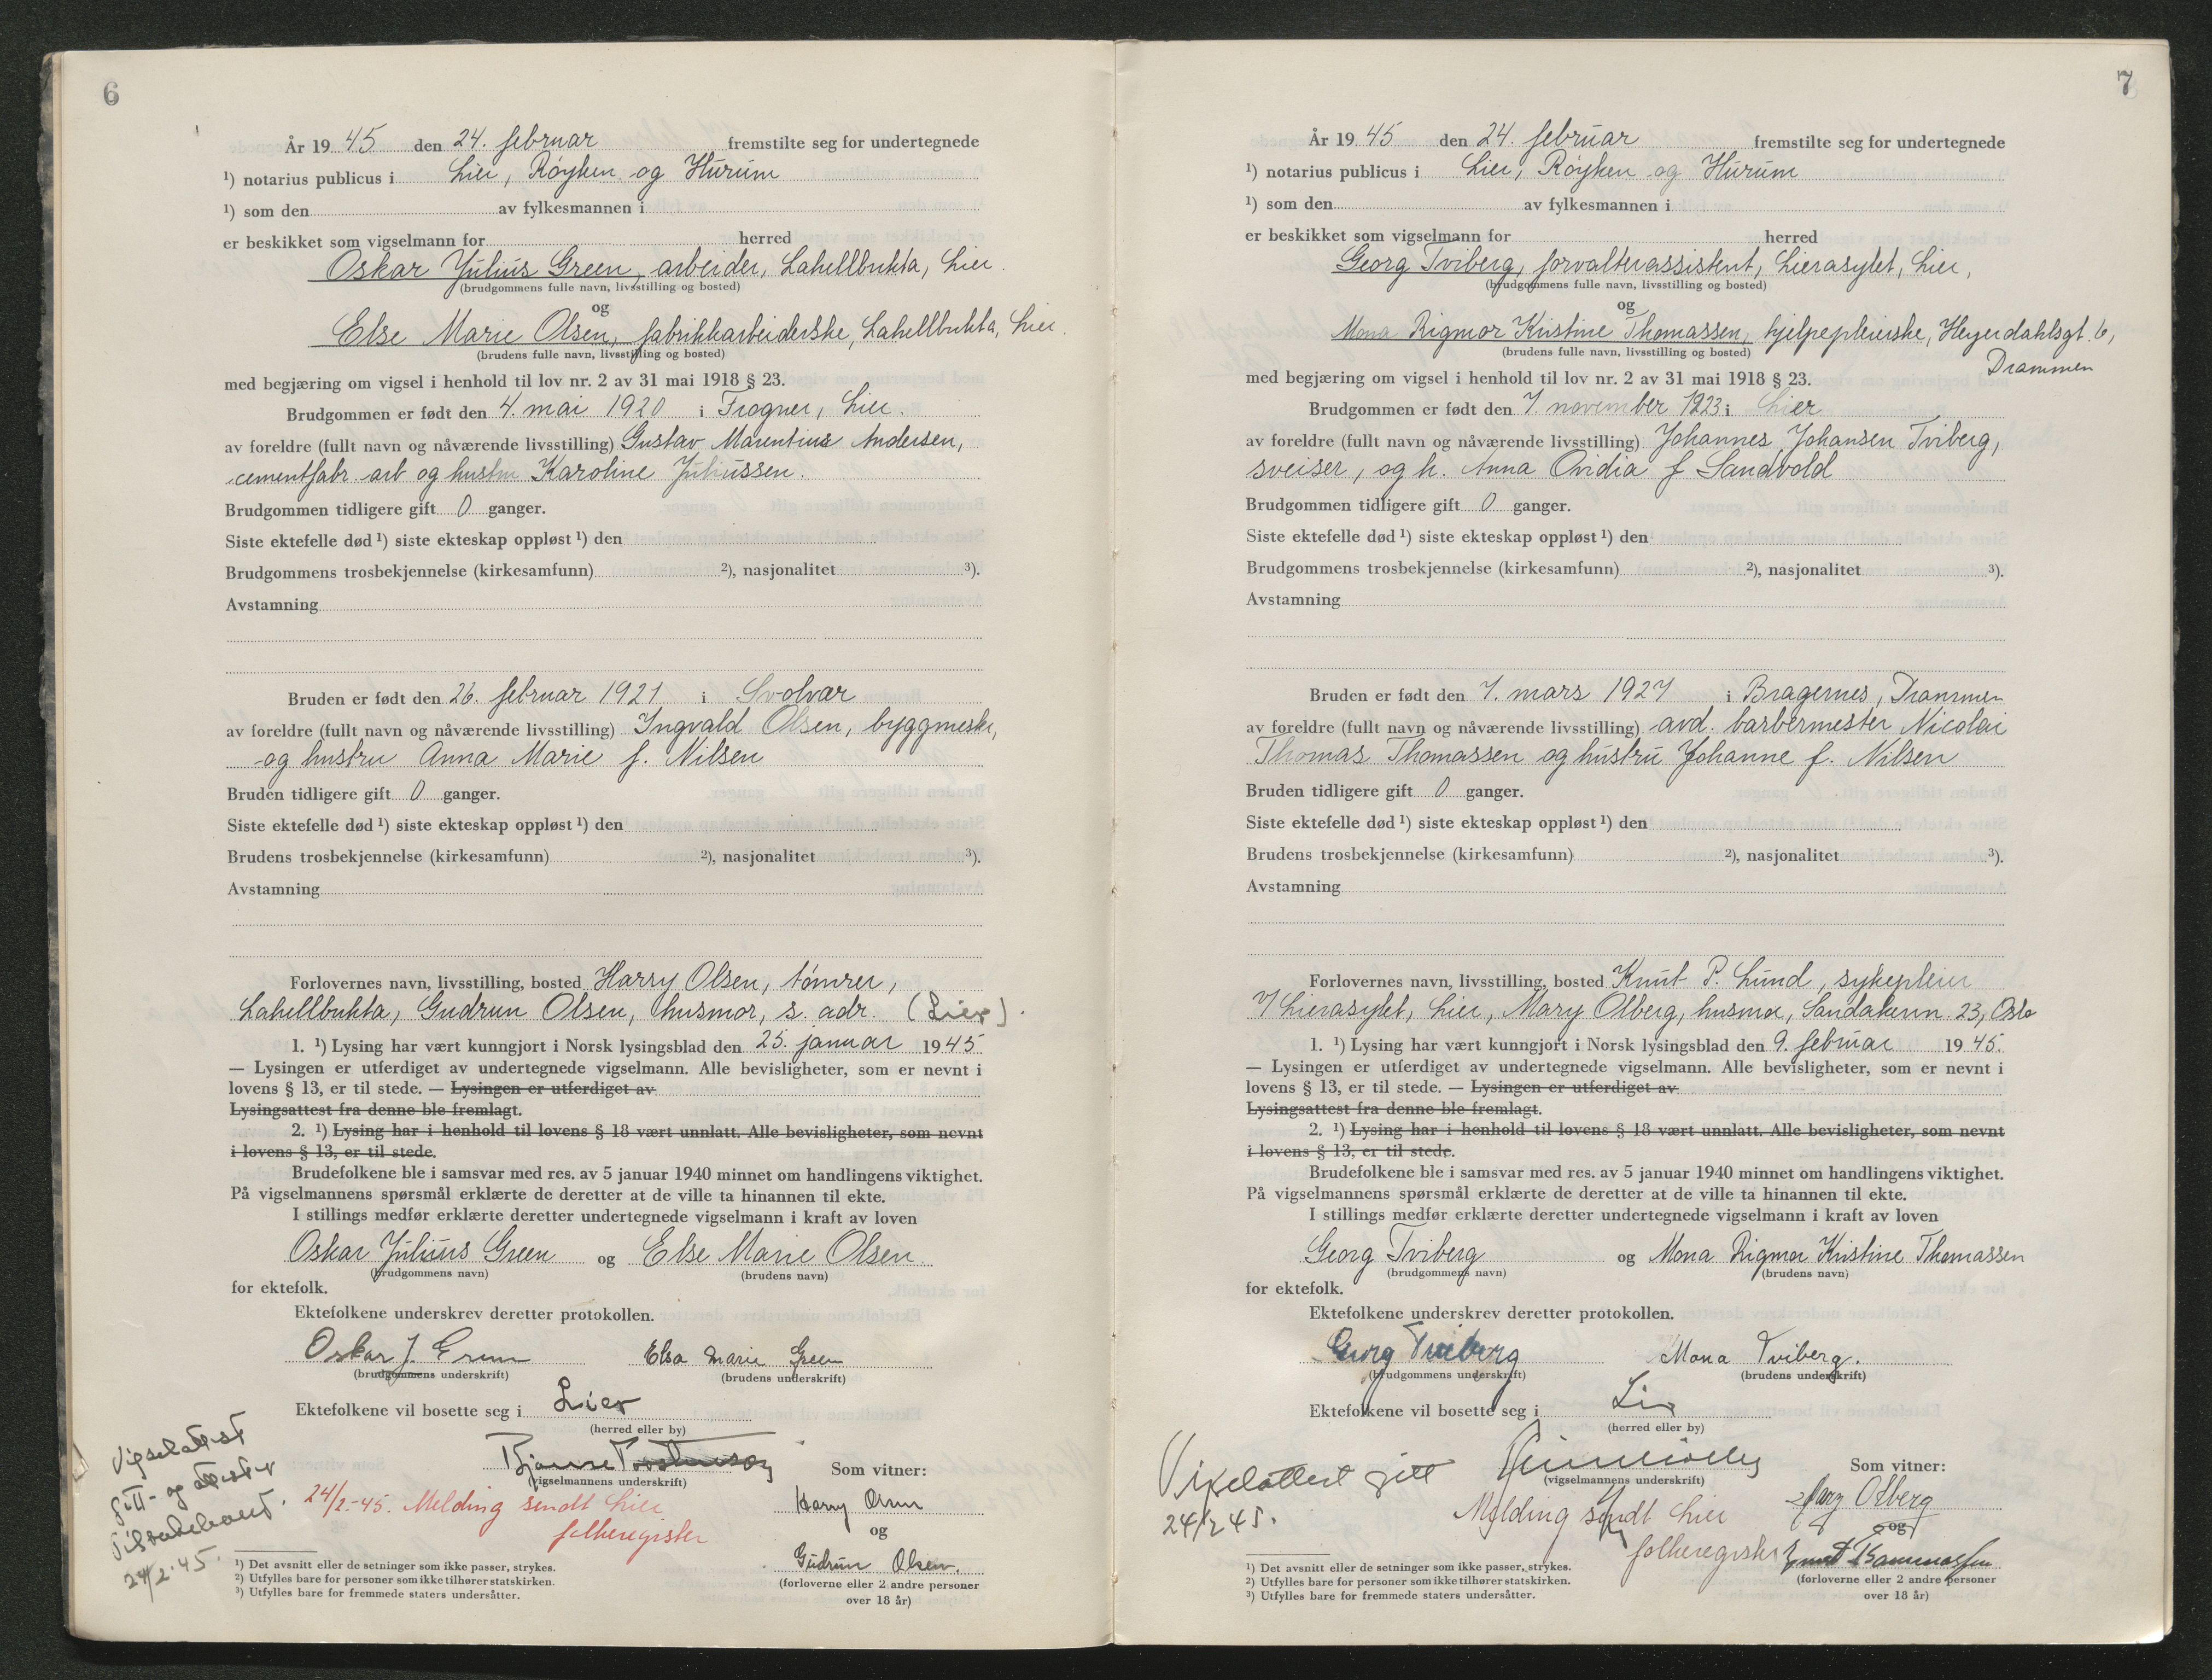 6
År 19 45 den 24. februar fremstilte seg for undertegnede
¹) notarius publicus i Lier, Røyken og Hurum
¹) som den av fylkesmannen i
er beskikket som vigselmann for herred
Oskar Julius Green, arbeider, Lahellbukta, Lier.
(brudgommens fulle navn, livsstilling og bosted)
og
Else Marie Olsen, fabrikkarbeiderske, Lahellbukta, Lier.
(brudens fulle navn, livsstilling og bosted)
med begjæring om vigsel i henhold til lov nr. 2 av 31 mai 1918 § 23.
Brudgommen er født den 4. mai 1920 i Frogner, Lier.
av foreldre (fullt navn og nåværende livsstilling) Gustav Marentius Andersen,
cementfabr. arb og hustru Karoline Juliussen.
Brudgommen tidligere gift 0 ganger.
Siste ektefelle død ¹) siste ekteskap oppløst ¹) den
Brudgommens trosbekjennelse (kirkesamfunn) ²), nasjonalitet ³).
Avstamning
Bruden er født den 26. februar 1921 i Svolvær
av foreldre (fullt navn og nåværende livsstilling) Ingvald Olsen, byggmester,
og hustru Anna Marie f. Nilsen
Bruden tidligere gift 0 ganger.
Siste ektefelle død ¹) siste ekteskap oppløst ¹) den
Brudens trosbekjennelse (kirkesamfunn) ²), nasjonalitet ³).
Avstamning
Forlovernes navn, livsstilling, bosted Harry Olsen, tømrer,
Lahellbukta, Gudrun Olsen, husmor, s. adr. (Lier).
1. ¹) Lysing har vært kunngjort i Norsk lysingsblad den 25. januar 1945.
— Lysingen er utferdiget av undertegnede vigselmann. Alle bevisligheter, som er nevnt i
lovens § 13, er til stede. — Lysingen er utferdiget av
Lysingsattest fra denne ble fremlagt.
2. ¹) Lysing har i henhold til lovens § 18 vært unnlatt. Alle bevisligheter, som nevnt
i lovens § 13, er til stede.
Brudefolkene ble i samsvar med res. av 5 januar 1940 minnet om handlingens viktighet.
På vigselmannens spørsmål erklærte de deretter at de ville ta hinannen til ekte.
I stillings medfør erklærte deretter undertegnede vigselmann i kraft av loven
Oskar Julius Green og Else Marie Olsen
(brudgommens navn) (brudens navn)
for ektefolk.
Ektefolkene underskrev deretter protokollen.
Oskar J. Green Elsa Marie Green
(brudgommens underskrift) (brudens underskrift)
Ektefolkene vil bosette seg i Lier
(herred eller by)
Bjarne Torstenson
(vigselmannens underskrift)
Som vitner:
Harry Olsen
og
Gudrun Olsen.
(forloverne eller 2 andre personer
over 18 år)
24/2-45. Melding sendt Lier
folkeregister
Vigselattest
gitt- og attester
tilbakelevert.
24/2-45.
¹) Det avsnitt eller de setninger som ikke passer, strykes.
²) Utfylles bare for personer som ikke tilhører statskirken.
³) Utfylles bare for fremmede staters undersåtter.
7
År 19 45 den 24. februar fremstilte seg for undertegnede
¹) notarius publicus i Lier, Røyken og Hurum
¹) som den av fylkesmannen i
er beskikket som vigselmann for herred
Georg Tviberg, forvalterassistent, Lierasylet, Lier,
(brudgommens fulle navn, livsstilling og bosted)
og
Mona Rigmor Kristine Thomassen, hjelpepleierske, Heyerdahlsgt. 6,
Drammen
(brudens fulle navn, livsstilling og bosted)
med begjæring om vigsel i henhold til lov nr. 2 av 31 mai 1918 § 23.
Brudgommen er født den 7. november 1923 i Lier
av foreldre (fullt navn og nåværende livsstilling) Johannes Johansen Tviberg,
sveiser, og h. Anna Ovidia f Sandvold
Brudgommen tidligere gift 0 ganger.
Siste ektefelle død ¹) siste ekteskap oppløst ¹) den
Brudgommens trosbekjennelse (kirkesamfunn) ²), nasjonalitet ³).
Avstamning
Bruden er født den 7. mars 1927 i Bragernes, Drammen
av foreldre (fullt navn og nåværende livsstilling) avd. barbermester Nicolai
Thomas Thomassen og hustru Johanne f. Nilsen
Bruden tidligere gift 0 ganger.
Siste ektefelle død ¹) siste ekteskap oppløst ¹) den
Brudens trosbekjennelse (kirkesamfunn) ²), nasjonalitet ³).
Avstamning
Forlovernes navn, livsstilling, bosted Knut P. Lund, sykepleier
v/ Lierasylet, Lier, Mary Olberg, husmor, Sandakervn. 23, Oslo
1. ¹) Lysing har vært kunngjort i Norsk lysingsblad den 9. februar 1945.
— Lysingen er utferdiget av undertegnede vigselmann. Alle bevisligheter, som er nevnt i
lovens § 13, er til stede. — Lysingen er utferdiget av
Lysingsattest fra denne ble fremlagt.
2. ¹) Lysing har i henhold til lovens § 18 vært unnlatt. Alle bevisligheter, som nevnt
i lovens § 13, er til stede.
Brudefolkene ble i samsvar med res. av 5 januar 1940 minnet om handlingens viktighet.
På vigselmannens spørsmål erklærte de deretter at de ville ta hinannen til ekte.
I stillings medfør erklærte deretter undertegnede vigselmann i kraft av loven
Georg Tviberg og Mona Rigmor Kristine Thomassen
(brudgommens navn) (brudens navn)
for ektefolk.
Ektefolkene underskrev deretter protokollen.
Georg Tviberg Mona Tviberg.
(brudgommens underskrift) (brudens underskrift)
Ektefolkene vil bosette seg i Lier
(herred eller by)
(vigselmannens underskrift)
Som vitner:
Mary Olberg
og
(forloverne eller 2 andre personer
over 18 år)
Vigselattest gitt
24/2 45.
Melding sendt Lier
folkeregister
¹) Det avsnitt eller de setninger som ikke passer, strykes.
²) Utfylles bare for personer som ikke tilhører statskirken.
³) Utfylles bare for fremmede staters undersåtter.